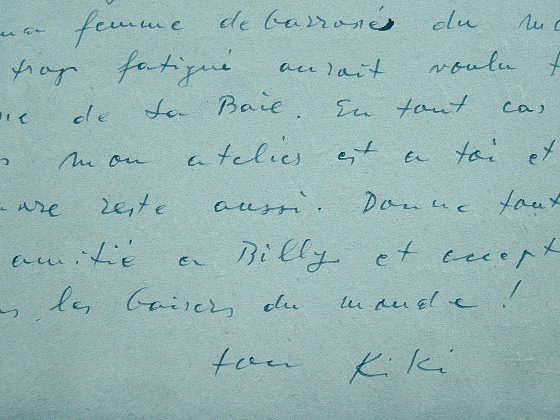 ma femme debarrosés du
trop fatigué aurait voulu
de ta Baie. En tout cas
mon atelier est a toi et
reste aussi. Donne tout
amitié a Billy et accept
les baisers du monde !
ton Kiki